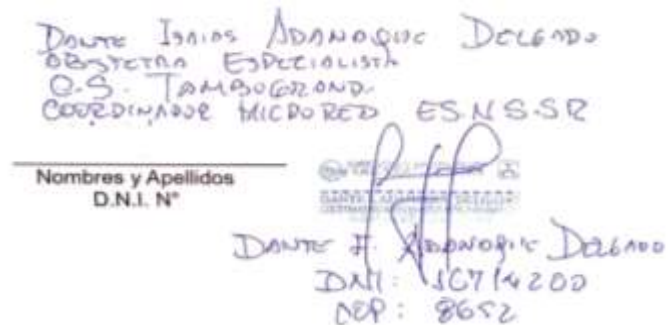 DANTE ISAIAS ADANAQUE DELGADO
OBSTETRA ESPECIALISTA
C.S. TAMBOGRANDE
COORDINADOR MICRORED ESNSSR
Nombres y Apellidos
D.N.I. N°
DANTE I. ADANAQUE DELGADO
DNI: 16714200
COP: 8652